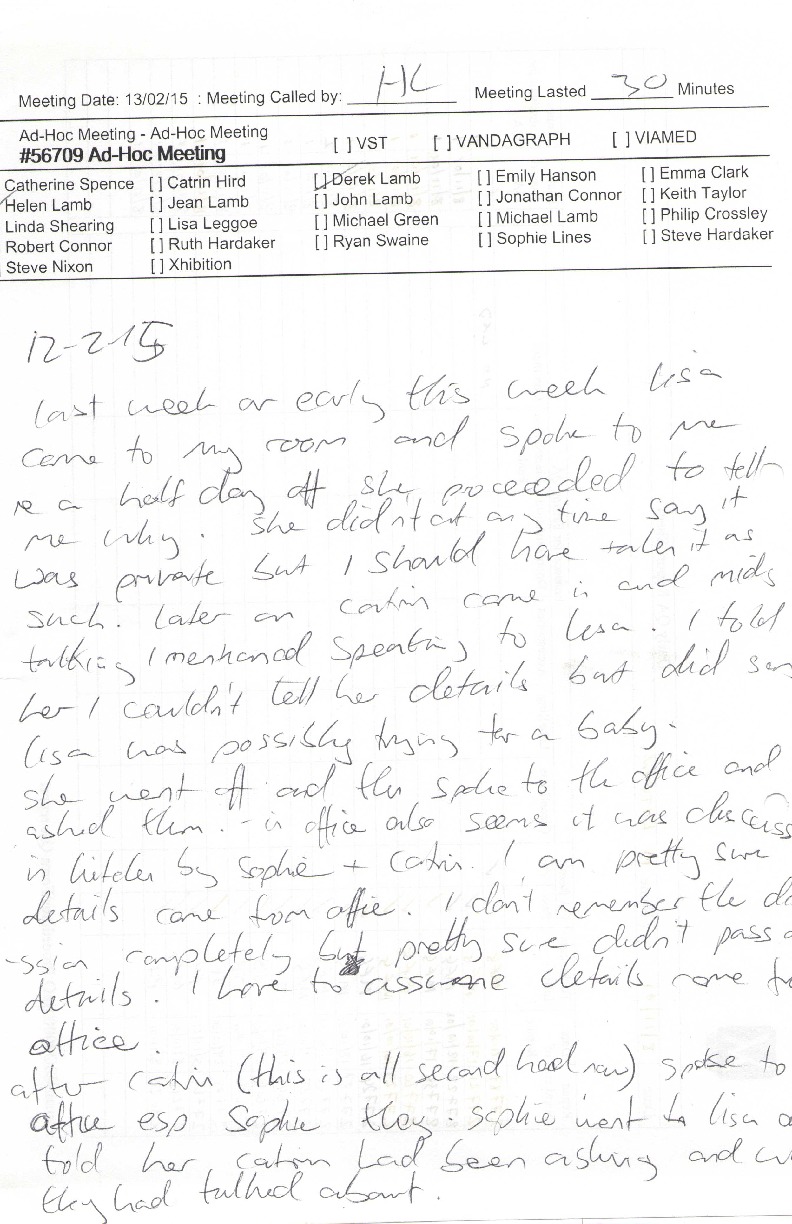 Meeting Date: 13/02/15 : Meeting Called by: HL Meeting Lasted 30 Minutes
Ad-Hoc Meeting - Ad-Hoc Meeting
#56709 Ad-Hoc Meeting
[ ] VST [ ] VANDAGRAPH [ ] VIAMED
Catherine Spence [ ] Catrin Hird [ ] Derek Lamb [ ] Emily Hanson [ ] Emma Clark
Helen Lamb [ ] Jean Lamb [ ] John Lamb [ ] Jonathan Connor [ ] Keith Taylor
Linda Shearing [ ] Lisa Leggoe [ ] Michael Green [ ] Michael Lamb [ ] Philip Crossley
Robert Connor [ ] Ruth Hardaker [ ] Ryan Swaine [ ] Sophie Lines [ ] Steve Hardaker
Steve Nixon [ ] Xhibition
12-2-15
last week or early this week lisa
came to my room and spoke to me
re a half day off she proceeded to tell
me why. she didn't at any time say it
was private but I should have taken it as
such. later on catrin came in and mids
talking I mentioned speaking to lisa. I told
her I couldn't tell her details but did say
lisa was possibly trying for a baby.
she went off and then spoke to the office and
asked them. - in office also seems it was discuss
in kitchen by Sophie + Catrin. I am pretty sure
details came from office. I don't remember the di
-ssion completely but pretty sure didn't pass
details. I have to assume details came
office.
after catrin (this is all second hand now) spoke to
office esp Sophie they sophie went to lisa
told her catrin had been asking and
they had talked about.